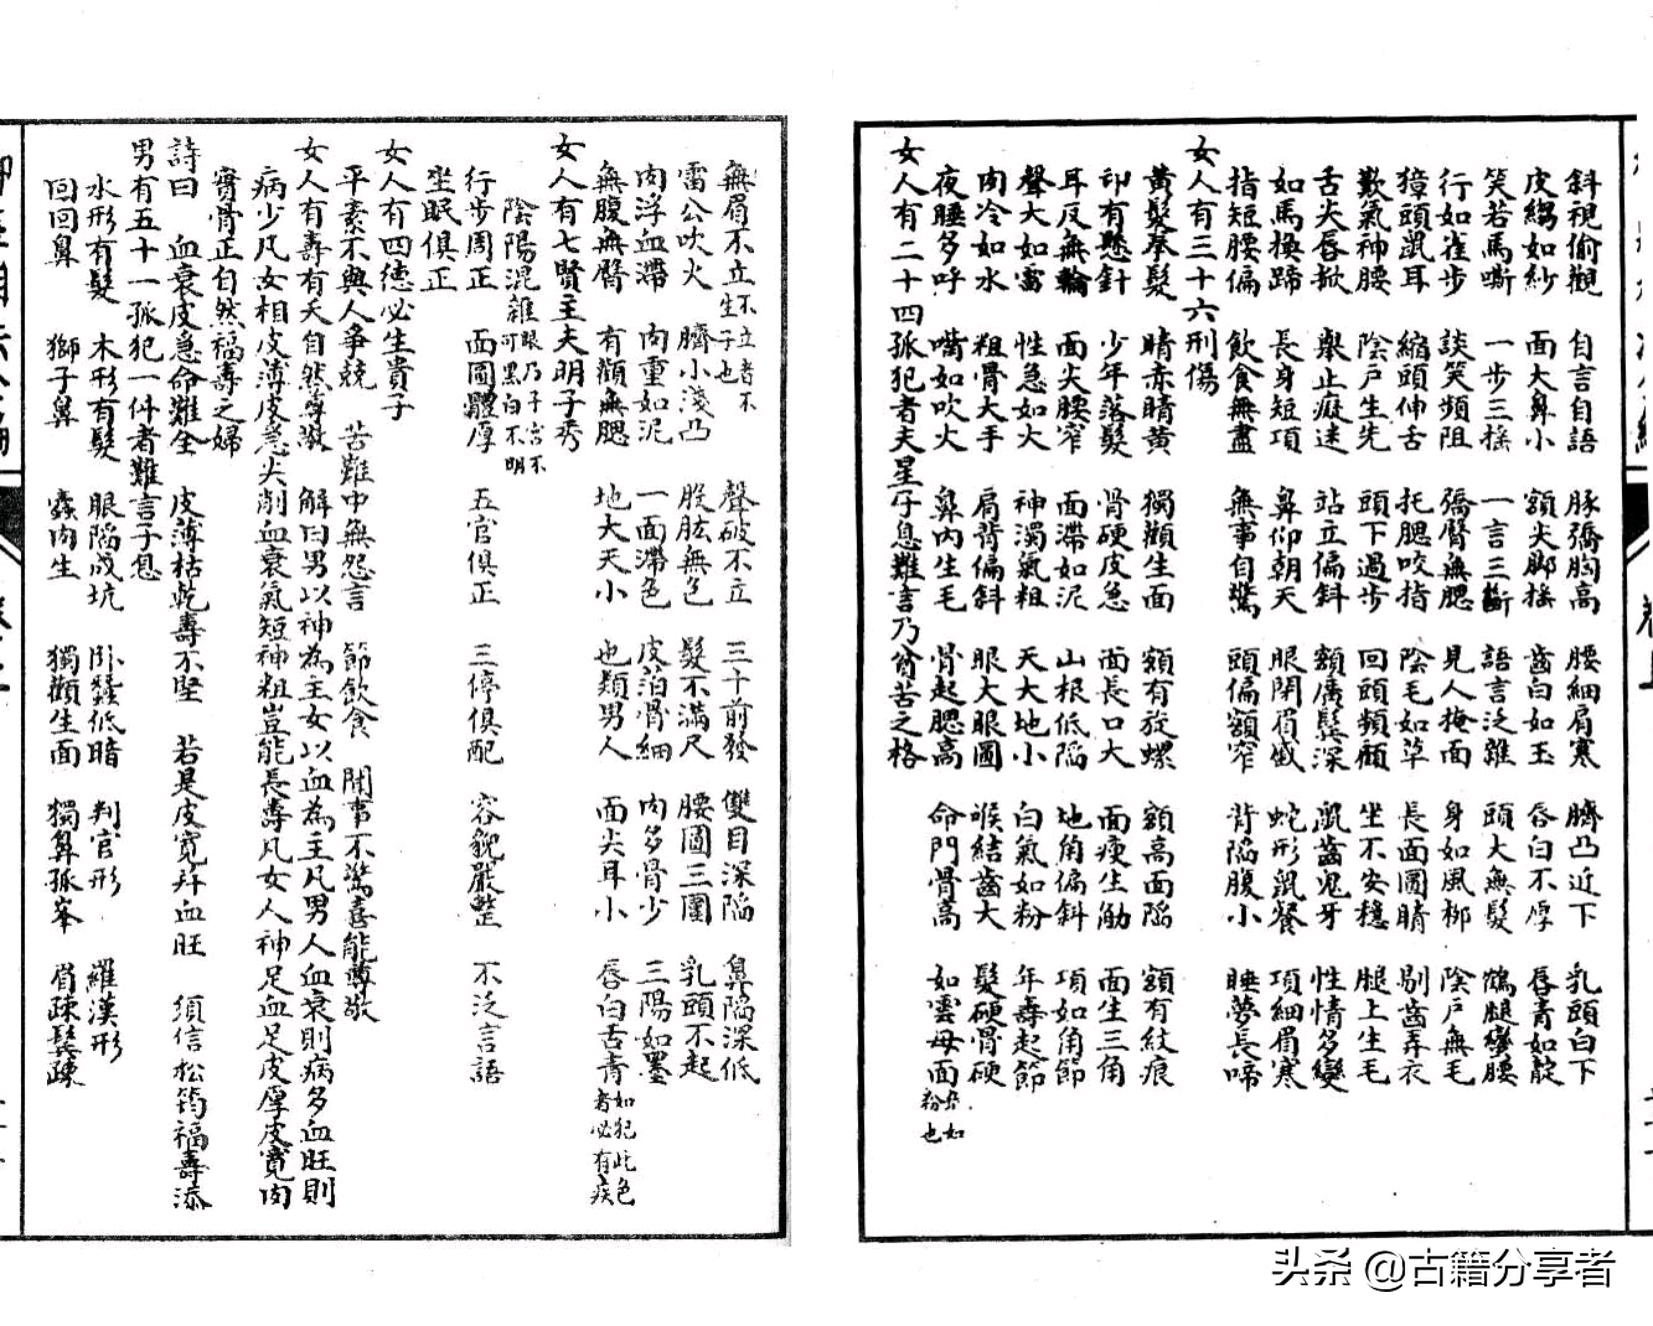 斜視偷觀　自言自語　豚臀胸高　腰細肩寒　臍凸近下　乳頭白下
皮縐如紗　面大鼻小　額尖脚搖　齒白如玉　唇白不厚　唇青如靛
笑若馬嘶　一步三搖　一言三斷　語言泛雜　頭大無髮　鶴腿蠻腰
行如雀步　談笑頻阻　臀無腮　見人掩面　身如風柳　陰戶無毛
獐頭鼠耳　縮頭伸舌　托腮咬指　陰毛如草　長面圓睛　剔齒弄衣
歎氣神腰　陰戶生先　頭下過步　回頭頻顧　坐不安穩　腿上生毛
舌尖唇掀　舉止癡迷　站立偏斜　額廣鬓深　鼠齒鬼牙　性情多變
如馬換蹄　長身短項　鼻仰朝天　眼閉眉蹙　蛇形鼠餐　項細眉寒
指短腰偏　飲食無盡　無事自驚　頭偏額窄　背陷腹小　睡夢長啼
女人有三十六刑傷
黃髮拳髮　睛赤睛黃　獨顴生面　額有旋螺　額高面陷　額有紋痕
印有懸針　少年落髮　骨硬皮急　面長口大　面瘦生觔　面生三角
耳反無輪　面尖腰窄　面滯如泥　山根低陷　地角偏斜　項如角節
聲大如雷　性急如火　神濁氣粗　天大地小　白氣如粉　年壽起節
肉冷如水　粗骨大手　肩背偏斜　眼大眼圓　喉結齒大　髮硬骨硬
夜睡多呼　嘴如吹火　鼻內生毛　骨起腮高　命門骨高　如雲母面如粉也
女人有二十四孤犯者夫星仔息難言乃貧苦之格
無眉不立不立者不生子也　聲破不立　三十前發　雙目深陷　鼻陷深低
雷公吹火　臍小淺凸　股肱無包　髮不滿尺　腰圓三圍　乳頭不起
肉浮血滯　肉重如泥　一面滯色　皮泊骨細　肉多骨少　三陽如墨
無腹無臀　有顴無腮　地大天小　也類男人　面尖耳小　唇白舌青如犯此色者必有疾
女人有七賢主夫明子秀
陰陽混雜眼乃子宮不可黑白不明
行步周正　面圓體厚　五官俱正　三停俱配　容貌嚴整　不泛言語
坐眠俱正
女人有四德必生貴子
平素不與人爭競　苦難中無怨言　節飲食　聞事不驚喜能尊敬
女人有壽有夭自然尊敬　解曰男以神為主女以血為主凡男人血衰則病多血旺則
病少凡女相皮薄皮急尖削血衰氣短神粗豈能長壽凡女人神足血足皮厚皮寬肉
實骨正自然福壽之婦
詩曰　血衰皮急命難全　皮薄枯乾壽不堅　若是皮寬并血旺　須信松筠福壽添
男有五十一孤犯一件者難言子息
水形有髮　木形有髮　眼陷成坑　卧蠶低暗　判官形　羅漢形
回回鼻　獅子鼻　蠢肉生　獨顴生面　獨鼻孤峯　眉疎鬓疎
头条 @古籍分享者